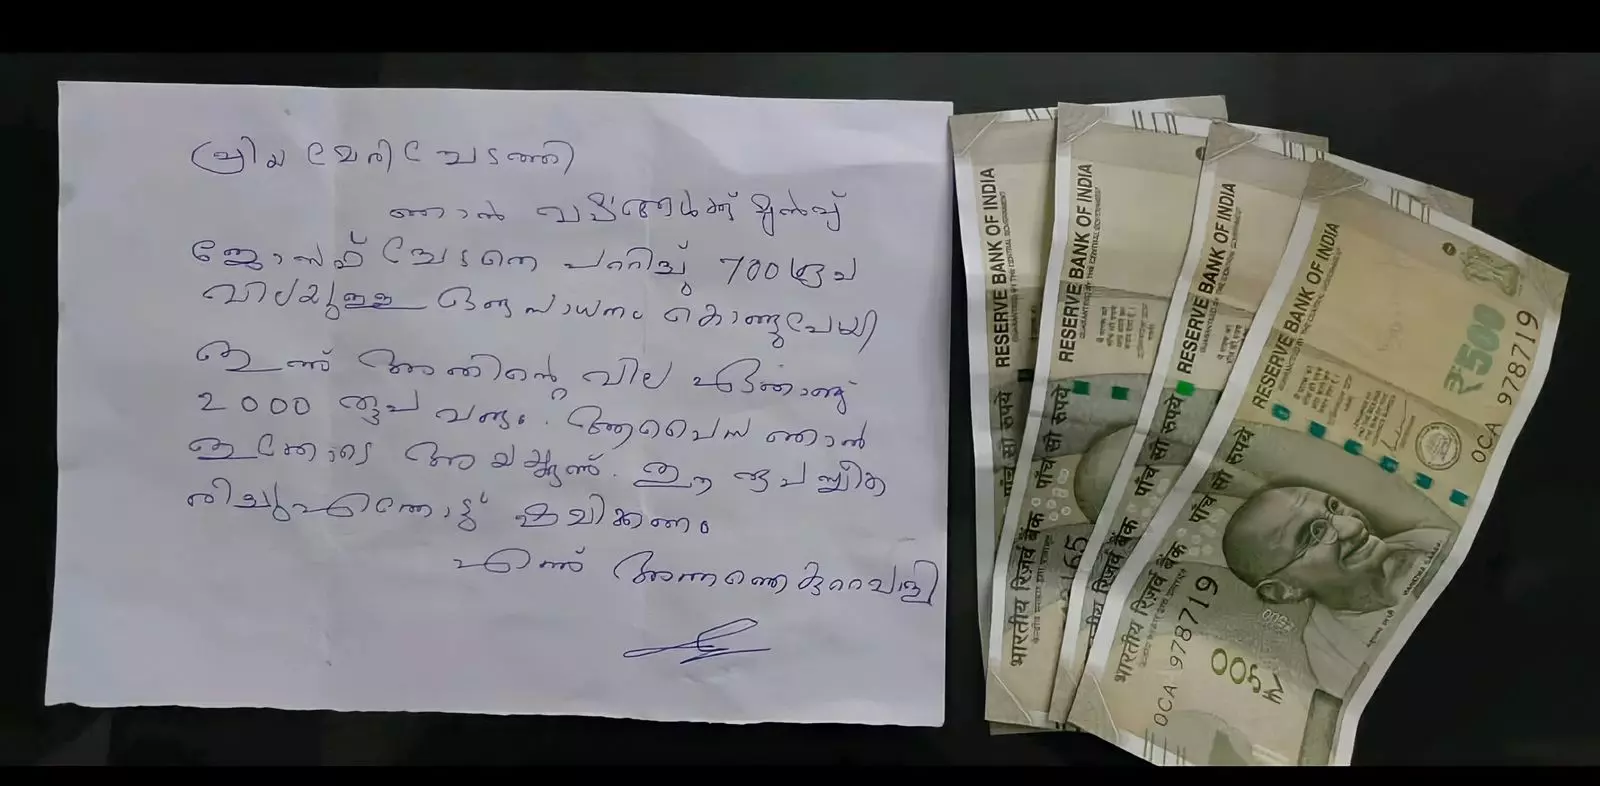 പ്രിയ മേരിചേടത്തി
ഞാൻ വർഷങ്ങൾക്ക് മുൻപ്
ജോസഫ് ചേട്ടനെ പറ്റിച്ചു് 700 രൂപ
വിലയുള്ള ഒരു സാധനം കൊണ്ടുപോയി
ഇന്ന് അതിന്റെ വില ഏതാണ്ട്
2000 രൂപ വരും. ആ പൈസ ഞാൻ
ഇതോടെ അയക്കുന്നു. ഈ രൂപ സ്വീക
രിച്ചു എന്നോടു് ക്ഷമിക്കണം
എന്ന് അന്നത്തെ കുറ്റവാളി
RESERVE BANK OF INDIA
RESERVE BANK OF INDIA
RESERVE BANK OF INDIA
RESERVE BANK OF INDIA
₹500
0CA 978719
पाँच सौ रुपये
पाँच सौ रुपये
पाँच सौ रुपये
पाँच सौ रुपये
भारतीय रिज़र्व बैंक
भारतीय रिज़र्व बैंक
भारतीय रिज़र्व बैंक
भारतीय रिज़र्व बैंक
0CA 978719
500